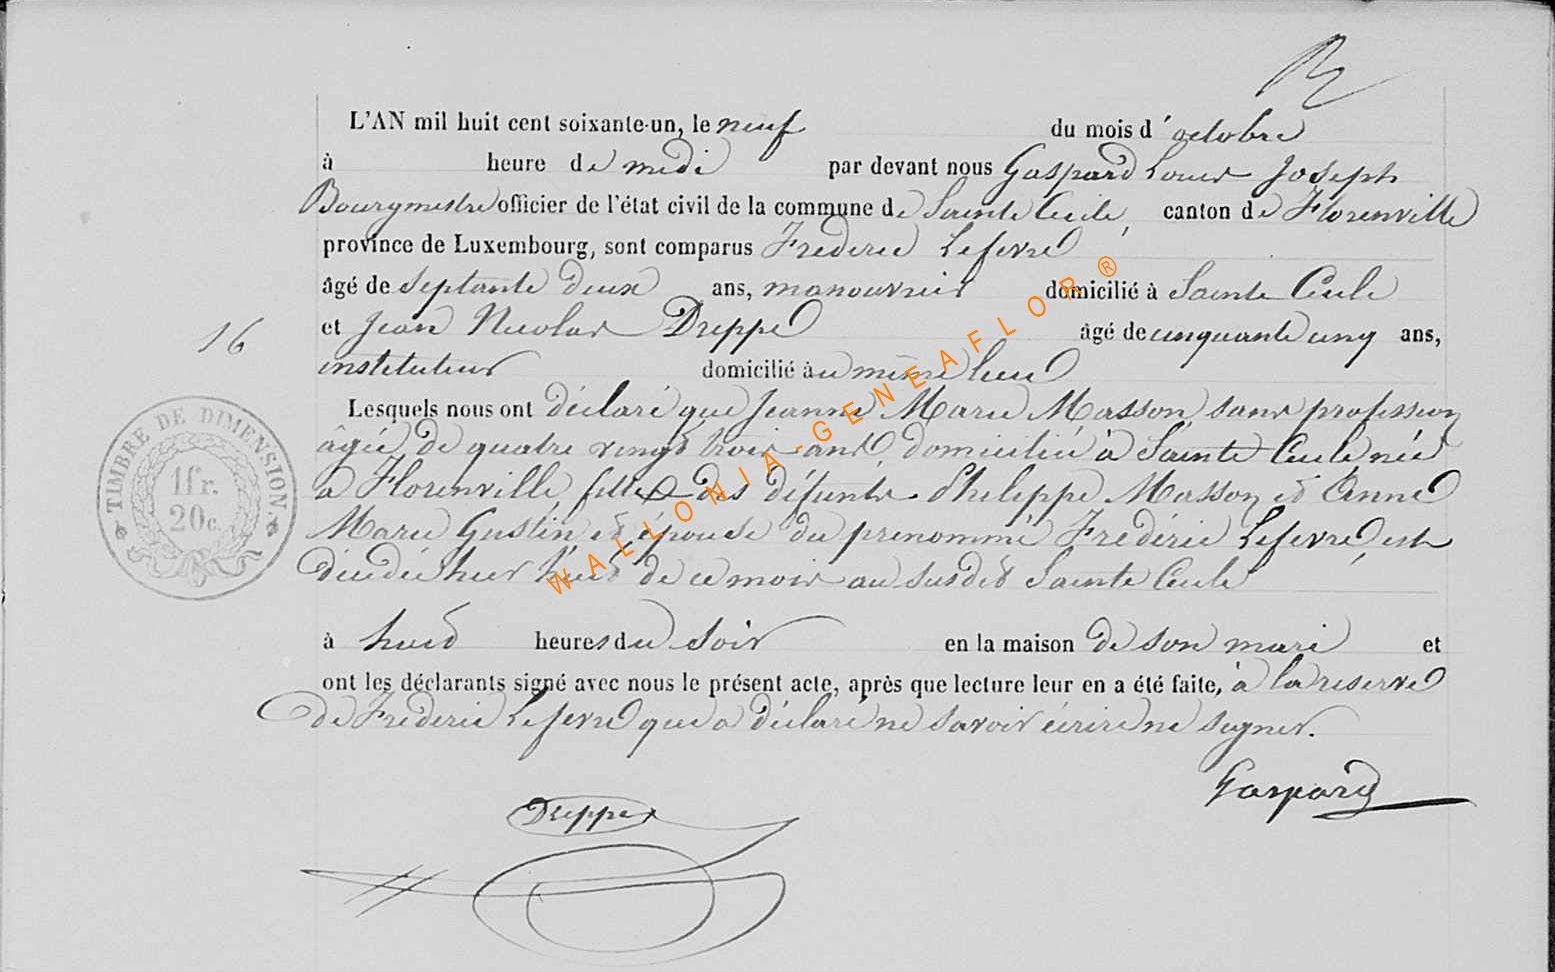 L'AN mil huit cent soixante-un, le neuf du mois d'octobre
à heure de midi par devant nous Gaspard Louis Joseph
Bourgmestre officier de l'état civil de la commune de Sainte Cecile, canton de Florenville
province de Luxembourg, sont comparus Frederic Lefevre
âgé de septante deux ans, manouvrier domicilié à Sainte Cecile
et Jean Nicolas Dreppe âgé de cinquante cinq ans,
16
instituteur domicilié au même lieu
Lesquels nous ont déclaré que Jeanne Marie Masson sans profession
âgée de quatre vingt trois ans, domiciliée à Sainte Cecile née
a Florenville, fille des défunts Philippe Masson et Anne
Marie Gustin et épouse du prenommé Fréderic Lefevre, est
décédée hier huit de ce mois au susdit Sainte Cecile
à huit heures du soir en la maison de son mari et
ont les déclarants signé avec nous le présent acte, après que lecture leur en a été faite, à la reserve
de Frederic Lefevre que a déclaré ne savoir écrire ne signer.
Gaspard
Dreppe
TIMBRE DE DIMENSION.
1fr.
20c.
WALLONIA-GENEAFLOR®